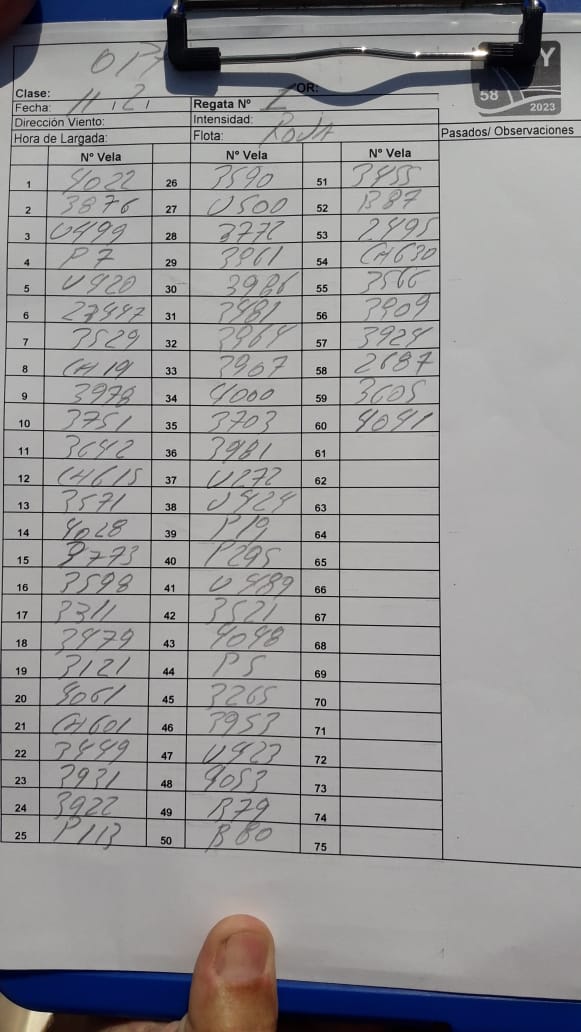 OPT
Clase: OR:
Fecha: 11,2, Regata Nº I
Dirección Viento: Intensidad:
Hora de Largada: Flota: ROJA
Pasados/ Observaciones
Y
58 2023
Nº Vela Nº Vela Nº Vela
1 4022 26 3590 51 3455
2 3876 27 U500 52 B87
3 U499 28 3772 53 2495
4 P7 29 3961 54 CH630
5 U420 30 3986 55 3566
6 23447 31 3481 56 3909
7 3529 32 3964 57 3924
8 CH19 33 3907 58 2687
9 3978 34 4000 59 3605
10 3751 35 3703 60 4041
11 3642 36 3981 61
12 CH615 37 U272 62
13 3571 38 U424 63
14 4028 39 P19 64
15 3773 40 P295 65
16 3598 41 U489 66
17 3311 42 3521 67
18 3479 43 4048 68
19 3121 44 P5 69
20 4061 45 3265 70
21 CH601 46 3953 71
22 3449 47 U423 72
23 3931 48 4053 73
24 3922 49 B79 74
25 P113 50 B80 75